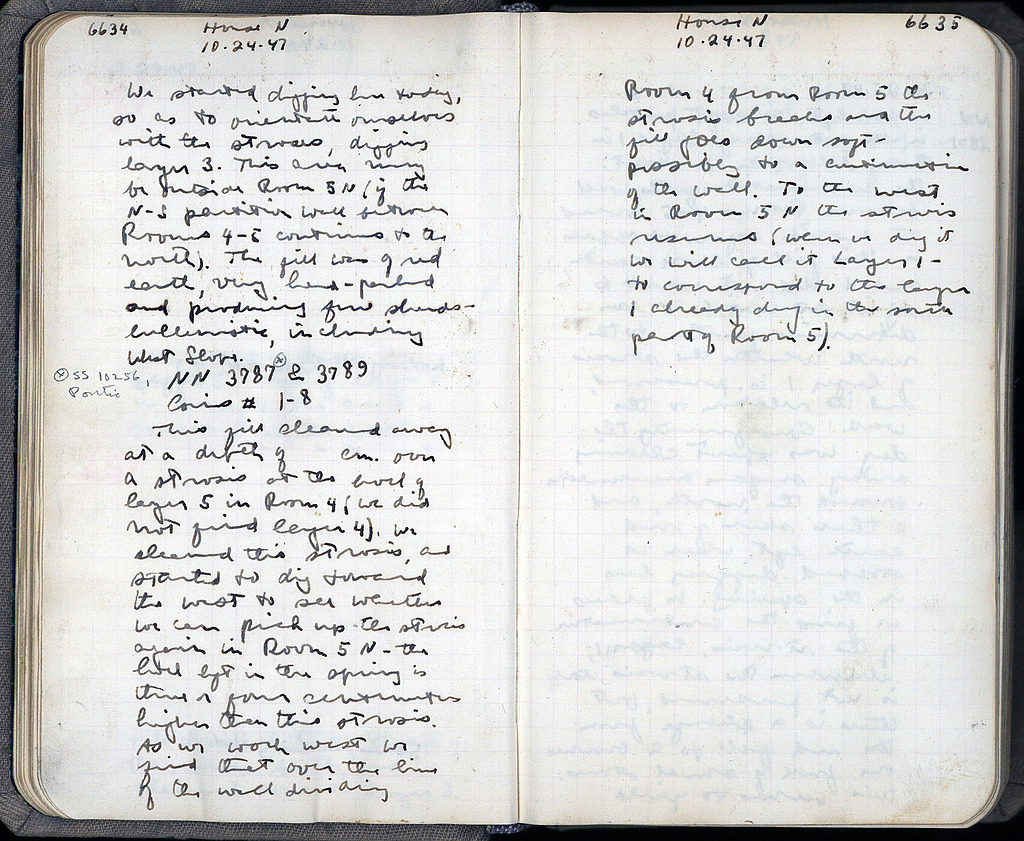 6634
House N
10.24.47
We started digging here today,
so as to orientate ourselves
with the strosis, digging
layer 3. This area may
be outside Room 5 N (if the
N-S partition wall between
Rooms 4-5 continues to the
north). The fill was of red
earth, very hard-packed
and producing few sherds -
hellenistic, including
West Slope.
NN 3787 ⊗ & 3789
⊗ SS 10256,
Pontic
Coins # 1-8
This fill cleaned away
at a depth of cm. over
a strosis at the level of
layer 5 in Room 4 (we did
not find layer 4). We
cleaned this strosis, and
started to dig toward
the west to see whether
we can pick up the strosis
again in Room 5 N - the
level left in the spring is
three or four centimeters
higher than this strosis.
As we work west we
find that over the line
of the wall dividing
House N
10.24.47
6635
Room 4 from Room 5 the
strosis breaks and the
fill goes down soft -
possibly to a continuation
of the wall. To the west
in Room 5 N the strosis
resumes (when we dig it
we will call it Layer 1 -
to correspond to the layer
1 already dug in the south
part of Room 5).